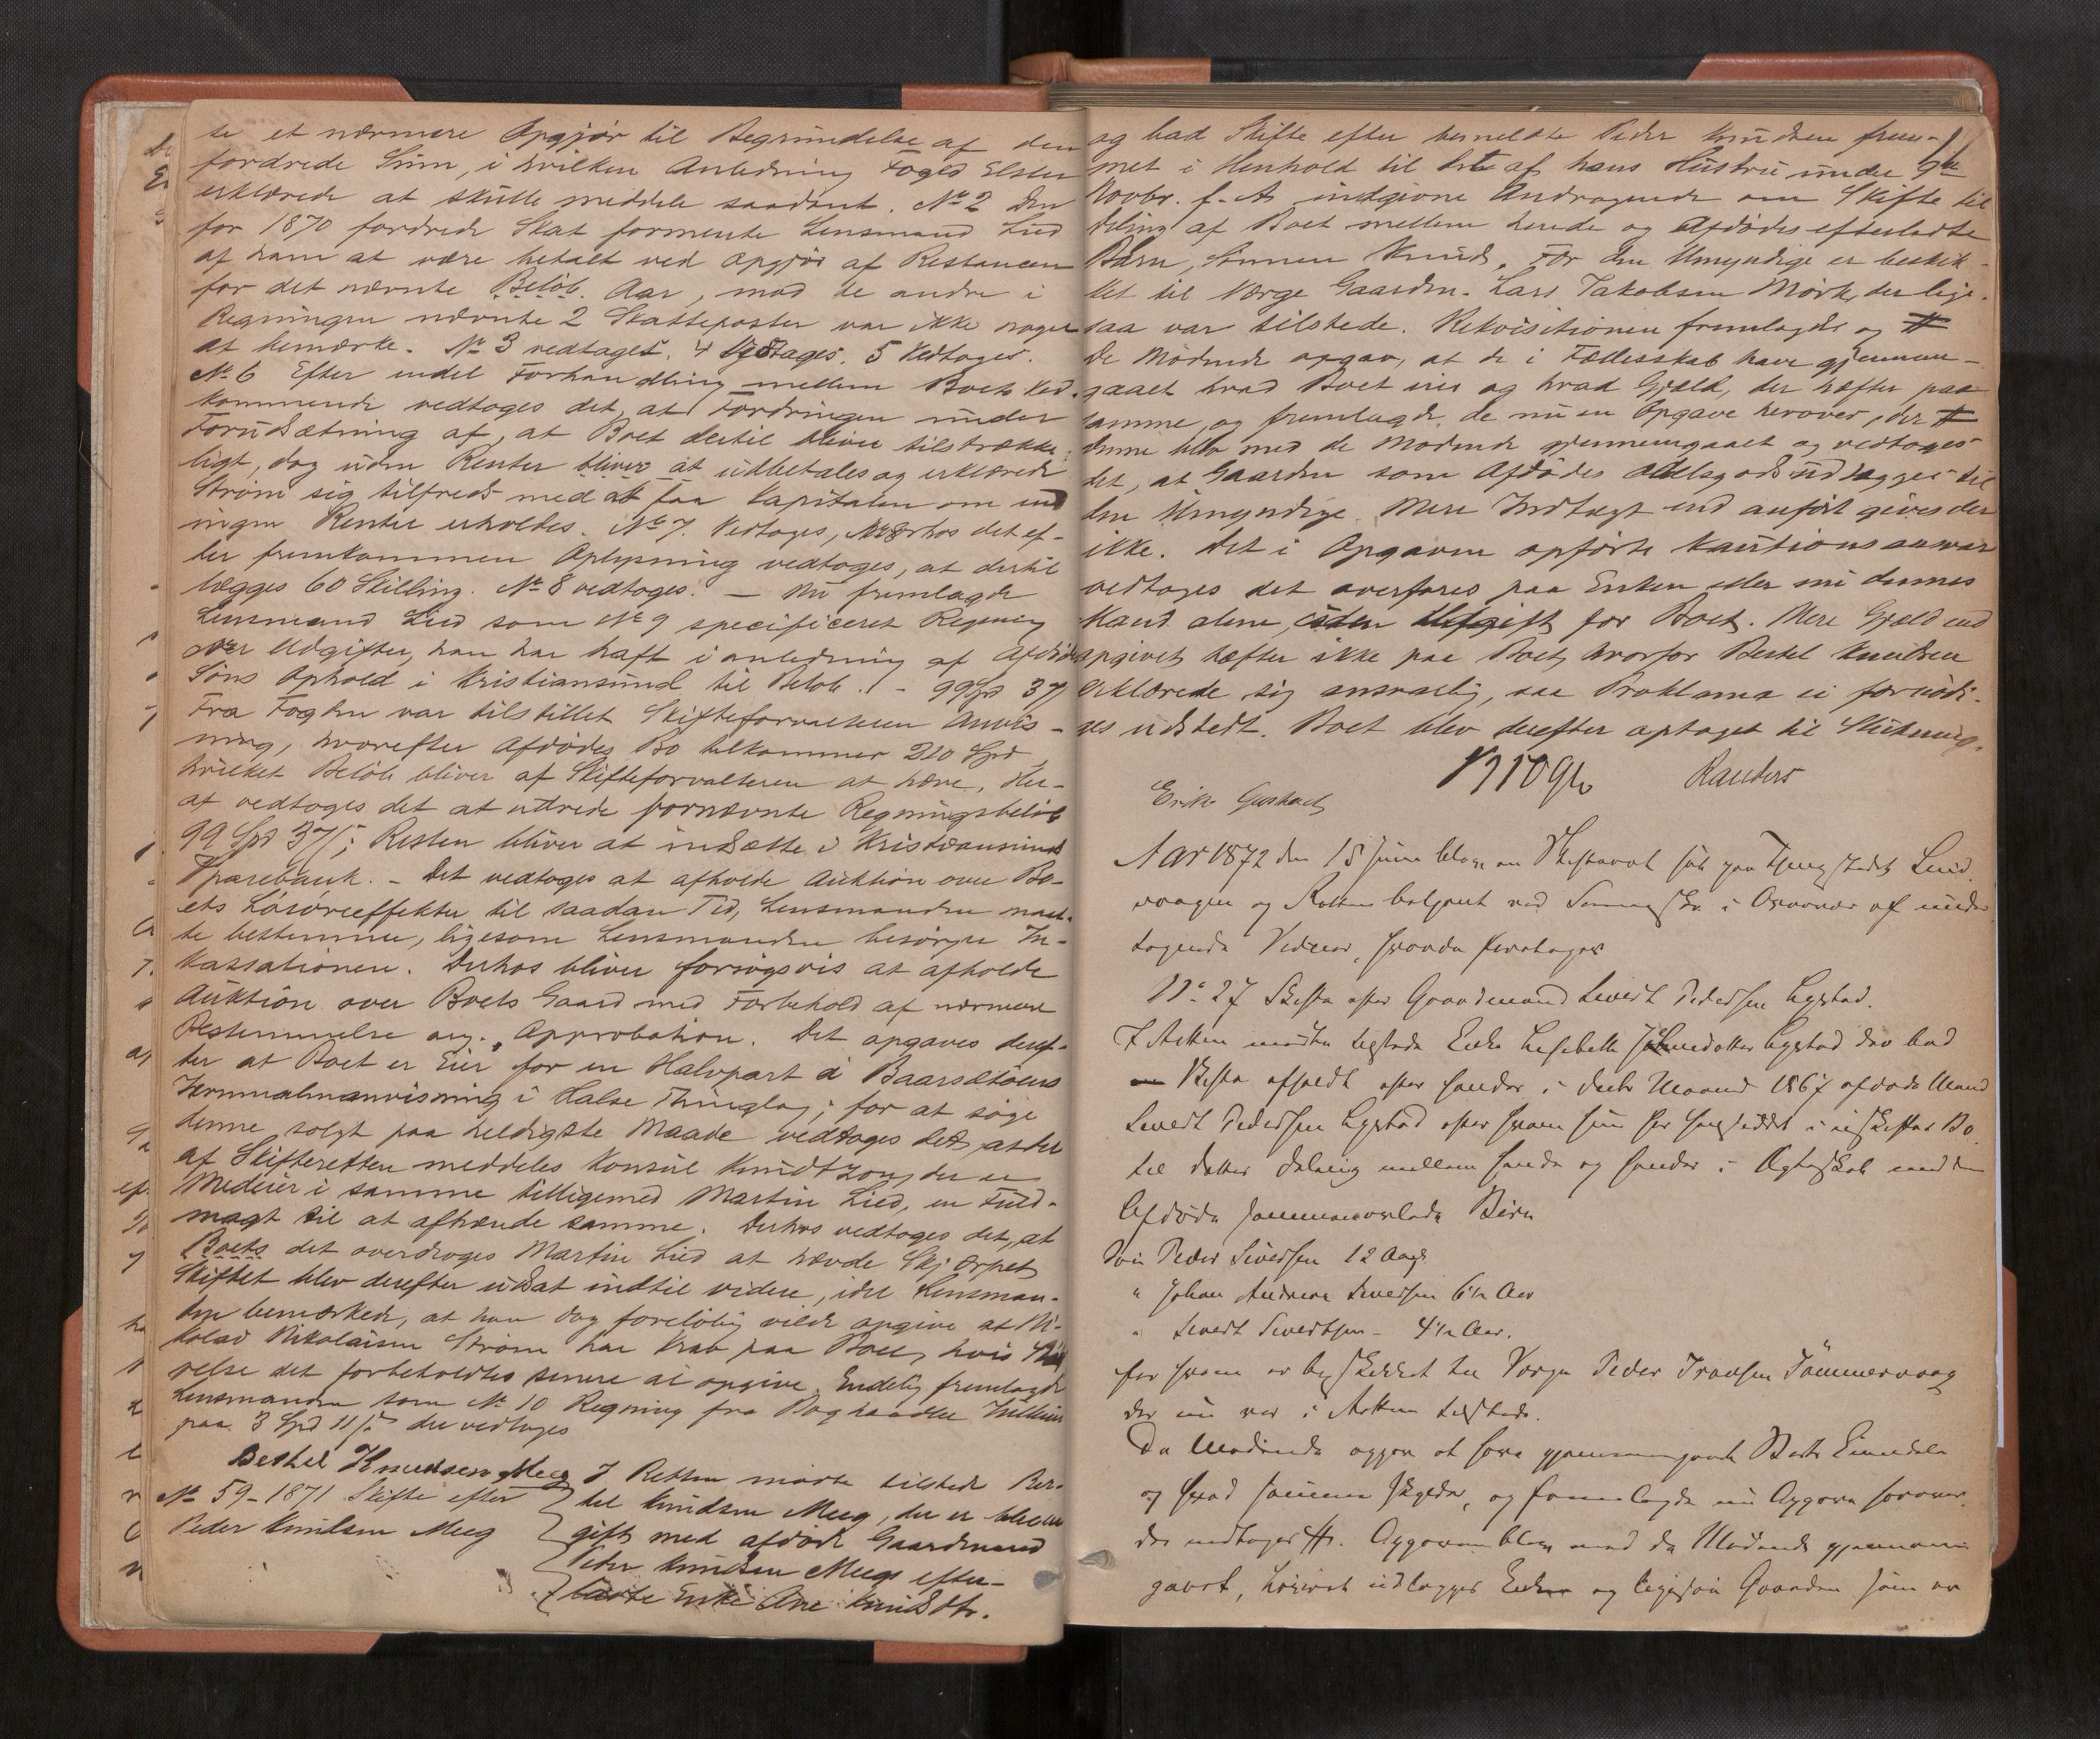 te et nærmere Opgjør til Begrundelse af den
fordrede Sum, i hvilken Anledning Foged Elster
erklærede at skulle meddele saadant. No 2 Den
for 1870 fordrede Skat formente Lensmand Lied
af ham at være betalt ved Opgjør af Restancen
for det nævnte Beløb. Aar, mod de andre i
Regningen nævnte 2 Skatteposter var ikke noget
at bemærke. No 3 vedtaget. 4 Vedtages. 5 Vedtages.
No 6 Efter endel Forhandling mellem Boets Ved-
kommende vedtoges det, at Fordringen under
Forudsætning af, at Boet dertil bliver tilstrække-
ligt, dog uden Renter bliver at udbetales og erklærede
Strøm sig tilfreds med at faa Kapitalen om end
ingen Renter erholdes. No 7. Vedtages, derhos det ef-
ter fremkommen Oplysning vedtoges, at dertil
lægges 60 Skilling. No 8 vedtoges. — Nu fremlagde
Lensmand Lied som No 9 specificeret Regning
over Udgifter, han har haft i anledning af Afdødes
Søns Ophold i Kristiansund til Beløb. - 99 Spd 37
Fra Fogden var tilstillet Skifteforvalteren Anvis-
ning, hvorefter Afdødes Bo tilkommer 210 Spd,
hvilket Beløb bliver af Skifteforvalteren at hæve. Her-
af vedtoges det at udrede fornævnte Regningsbeløb
99 Spd 37 ; Resten bliver at indsætte i Kristiansunds
Sparebank. - Det vedtoges at afholde Auktion over Bo-
ets Løsøreeffekter til saadan Tid, Lensmanden maat-
te bestemme, ligesom Lensmanden besørger In-
kassationen. Derhos bliver forsøgsvis at afholde
Auktion over Boets Gaard med Forbehold af nærmere
Bestemmelse ang. Approbation. Det opgaves deref-
ter at Boet er Eier for en Halvpart i Baarsetøens
Jernmalmanvisning i Halse Thinglag; for at søge
denne solgt paa heldigste Maade vedtoges det, at der
af Skifteretten meddeles Konsul Knudtzon, der er
Medeier i samme tilligemed Martin Lied, en Fuld-
magt til at afhænde samme. Derhos vedtoges det, at
Boets det overdroges Martin Lied at hævde Skjærpet
Skiftet blev derefter udsat indtil videre, idet Lensman-
den bemærkede, at han dog foreløbig vilde opgive at Ni-
kolai Nikolaisen Strøm har Krav paa Boet, hvis Stør-
relse det forbeholdtes senere at opgive. Endelig fremlagde
Lensmanden som No 10 Regning fra Boghandler
paa 3 Spd 11 der vedtoges
Berthel Knudsen Meeg
No 59-1871 Skifte efter
Peder Knudsen Meeg
I Retten mødte tilstede Ber-
tel Knudsen Meeg, der er bleven
gift med afdøde Gaardmand
Peder Knudsen Meegs efter-
ladte Enke Ane Knudsdtr.
og bad Skifte efter bemeldte Peder Knudsen frem-
met i Henhold til det af hans Hustru under 9de
Novbr. f. A. indgivne Andragende om Skifte til
Deling af Boet mellem hende og Afdødes efterladte
Barn, Sønnen Knud. For den Umyndige er beskik-
ket til Værge Gaardm. Lars Jakobsen Mørk, der lige-
saa var tilstede. Rekvisitionen fremlagdes og #
De Mødende opgav, at de i Fællesskab have gjennem-
gaaet hvad Boet eier og hvad Gjæld, der hæfter paa
samme, og fremlagde de nu en Opgave herover, der #
denne blev med de Mødende gjennemgaaet og vedtoges
det, at Gaarden som Afdødes Odelsgods udlægges til
den Umyndige. Mere Indtægt end anført gives der
ikke. Det i Opgaven opførte Kautionsansvar
vedtoges det overføres paa Enken eller nu dennes
Mand alene, uden Udgift for Boet. Mere Gjæld end
opgivet hæfter ikke paa Boet, hvorfor Bertel Knudsen
erklærede sig ansvarlig, saa Proklama ei fornødi-
ges udstedt. Boet blev derefter optaget til Slutning.
Randers
Erik Gustad
Aar 1872 den 15 Juni blev en Skifteret sat paa Thingstedet Lied
vaagen og Retten betjent ved i Overvær af under
tegnede Vidner, hvorda foretoges
No 27 Skifte efter Gaardmand Sivert Pedersen Lystad.
I Retten mødte tilstede Enke Lisebeth Lystad der bad
Skifte afholdt efter hendes i Decbr Maaned 1867 afdøde Mand
Sivert Pedersen Lystad efter hvem hun har hensiddet i uskiftet Bo
til dettes Deling mellem hende og hendes i Ægteskab med den
Afdøde sammenavlede Børn
Peder Sivertsen 12 Aar
" Johan Andreas Sivertsen 6½ Aar
" Sivert Sivertsen - 4½ Aar.
for hvem er beskikket til Værge Peder Iversen Tømmervaag
der nu var i Retten tilstede.
De Mødende opgav at have gjennemgaaet Boets Eiendele
og hvad samme skylder, og fremlagde nu Opgave herover,
der vedtoges #. Opgaven blev med de Mødende gjennem
gaaet, Løsøret udlægges Enken og ligesaa Gaarden som er